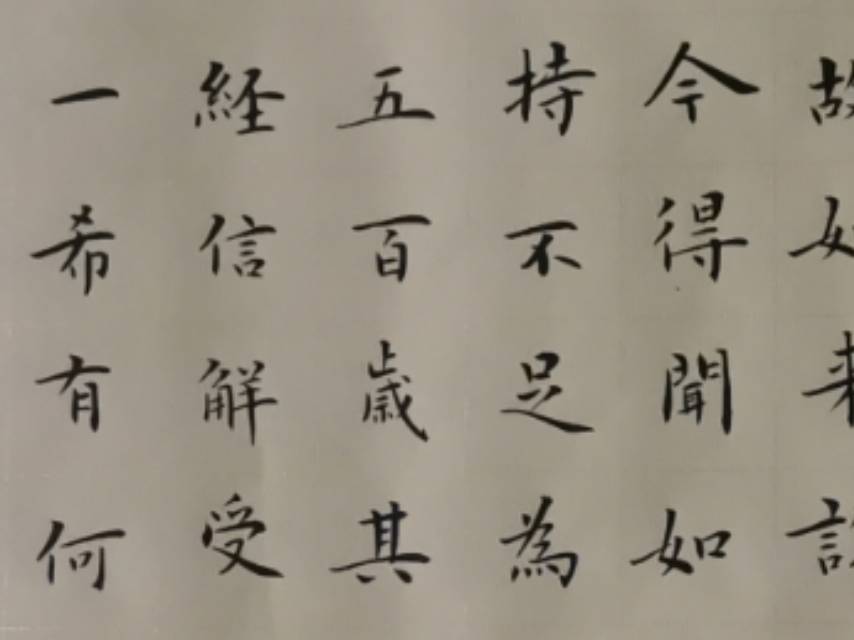 故如来說
今得聞如
持不足為
五百歳其
経信解受
一希有何